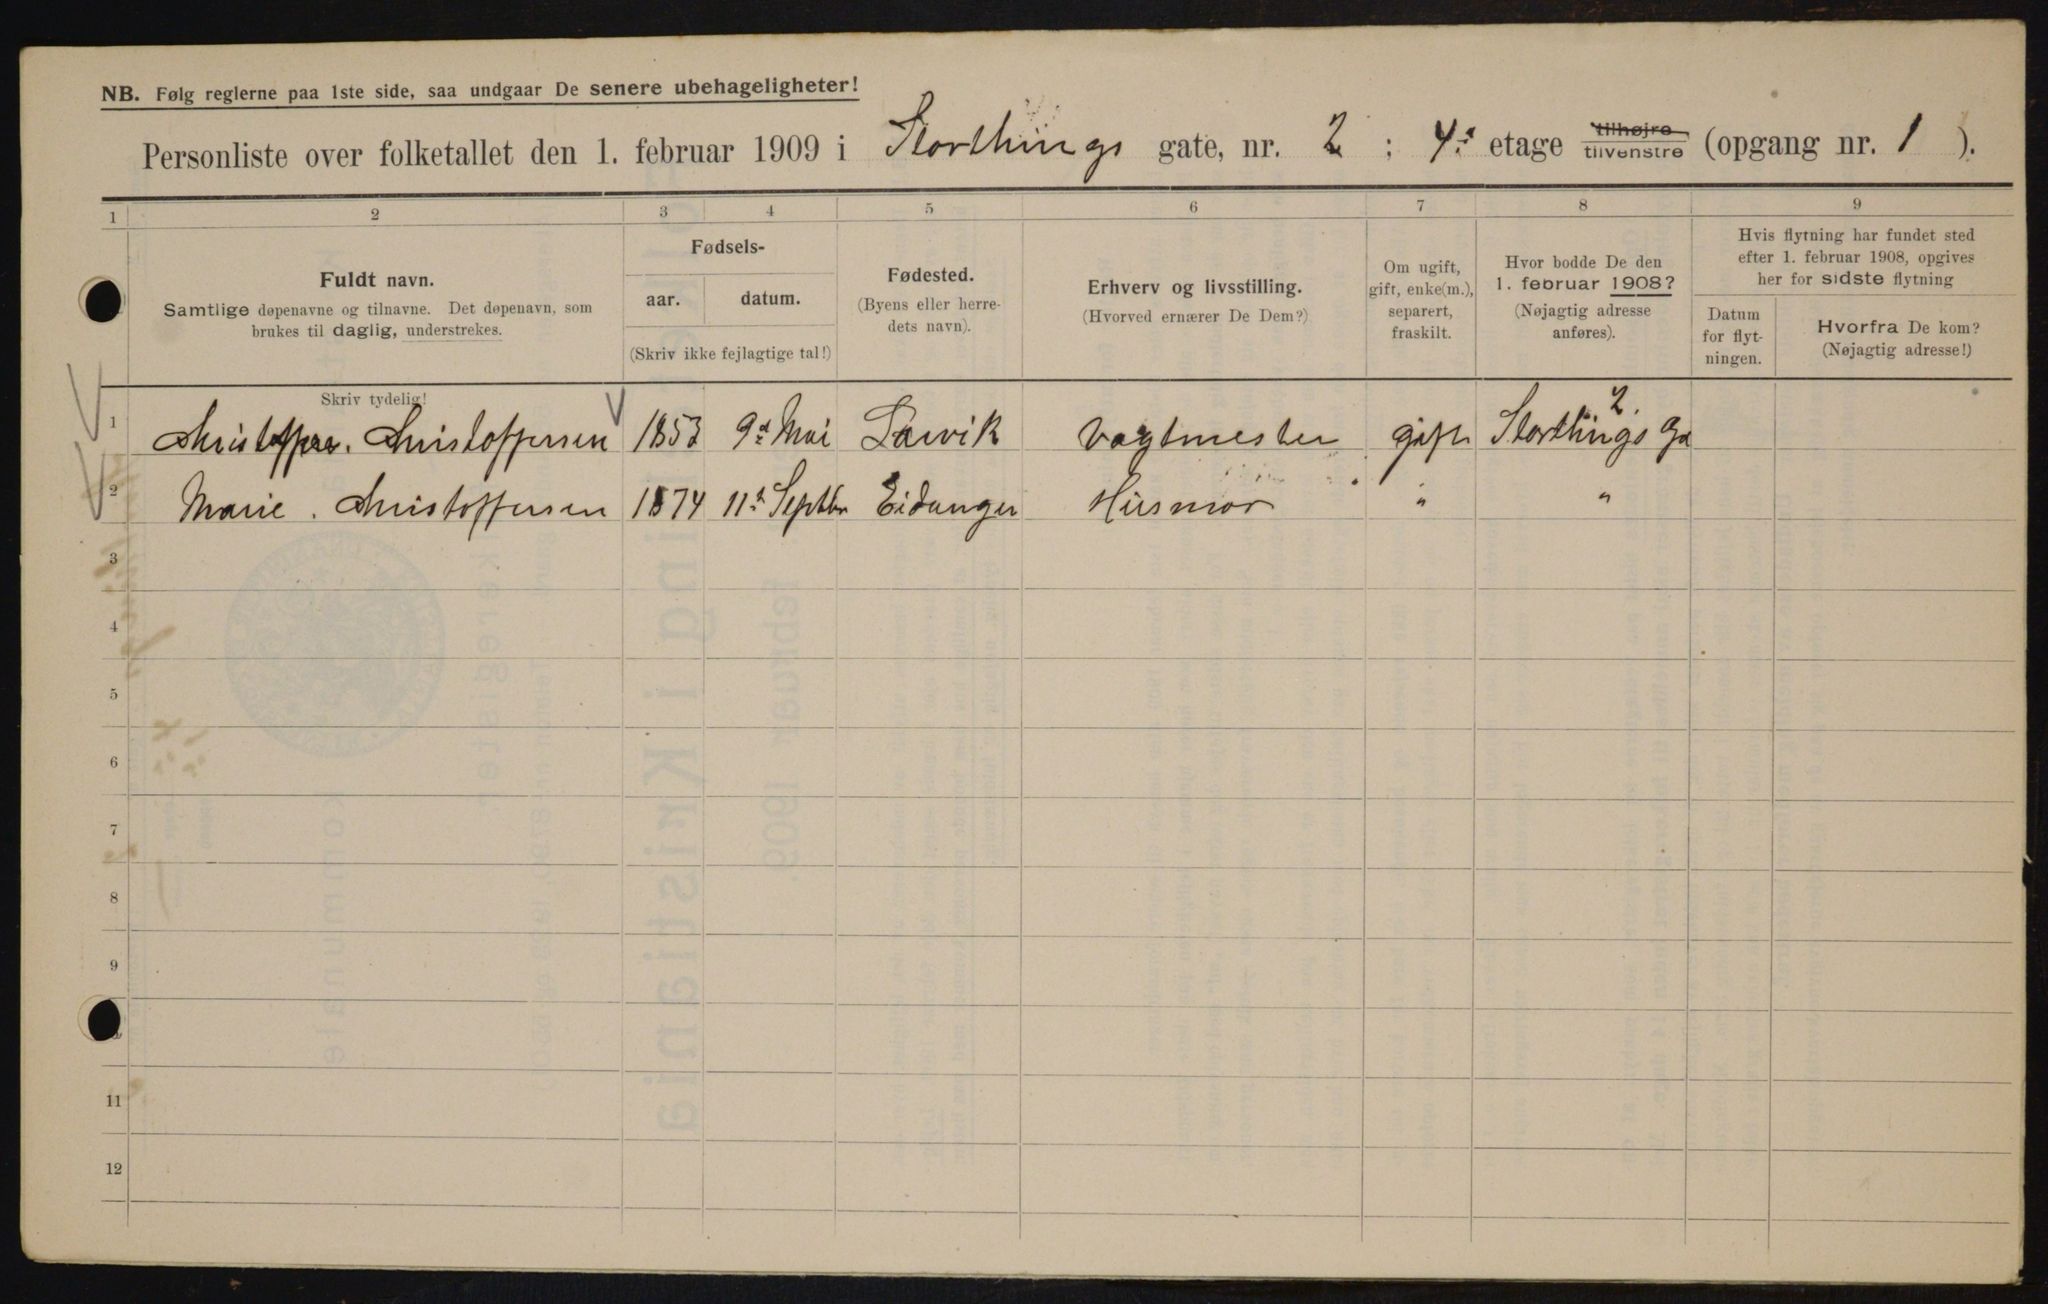 NB. Følg reglerne paa 1ste side, saa undgaar De senere ubehageligheter!
Personliste over folketallet den 1. februar 1909 i Storthings gate, nr. 2 ; 4. etage tilhøjre tilvenstre (opgang nr. 1 ).
1 2 3 4 5 6 7 8 9
Fuldt navn.
Samtlige døpenavne og tilnavne. Det døpenavn, som
brukes til daglig, understrekes.
Fødsels-
aar. datum.
(Skriv ikke fejlagtige tal!)
Fødested.
(Byens eller herre-
dets navn).
Erhverv og livsstilling.
(Hvorved ernærer De Dem?)
Om ugift,
gift, enke(m.),
separert,
fraskilt.
Hvor bodde De den
1. februar 1908?
(Nøjagtig adresse
anføres).
Hvis flytning har fundet sted
efter 1. februar 1908, opgives
her for sidste flytning
Datum
for flyt-
ningen.
Hvorfra De kom?
(Nøjagtig adresse!)
Skriv tydelig!
1 Christoffer. Christoffersen 1853 9d Mai Larvik Vagtmester gift Storthings ga 2
2 Marie. Christoffersen 1874 11t Septbr Eidanger Husmor " "
3
4
5
6
7
8
9
11
12